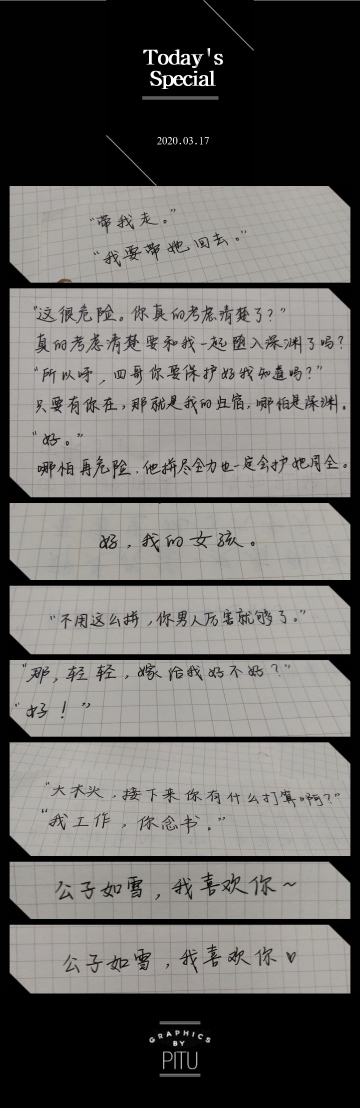 Today's
Special
2020.03.17
“带我走。”
“我要带她回去。”
“这很危险。你真的考虑清楚了？”
真的考虑清楚要和我一起堕入深渊了吗？
“所以呀，四哥你要保护好我知道吗？”
只要有你在，那就是我的归宿，哪怕是深渊。
“好。”
哪怕再危险，他拼尽全力也一定会护她周全。
好，我的女孩。
“不用这么拼，你男人厉害就够了。”
“那，轻轻，嫁给我好不好？”
“好！”
“大木头，接下来你有什么打算啊？”
“我工作，你念书。”
公子如雪，我喜欢你～
公子如雪，我喜欢你♡
GRAPHICS
BY
PITU